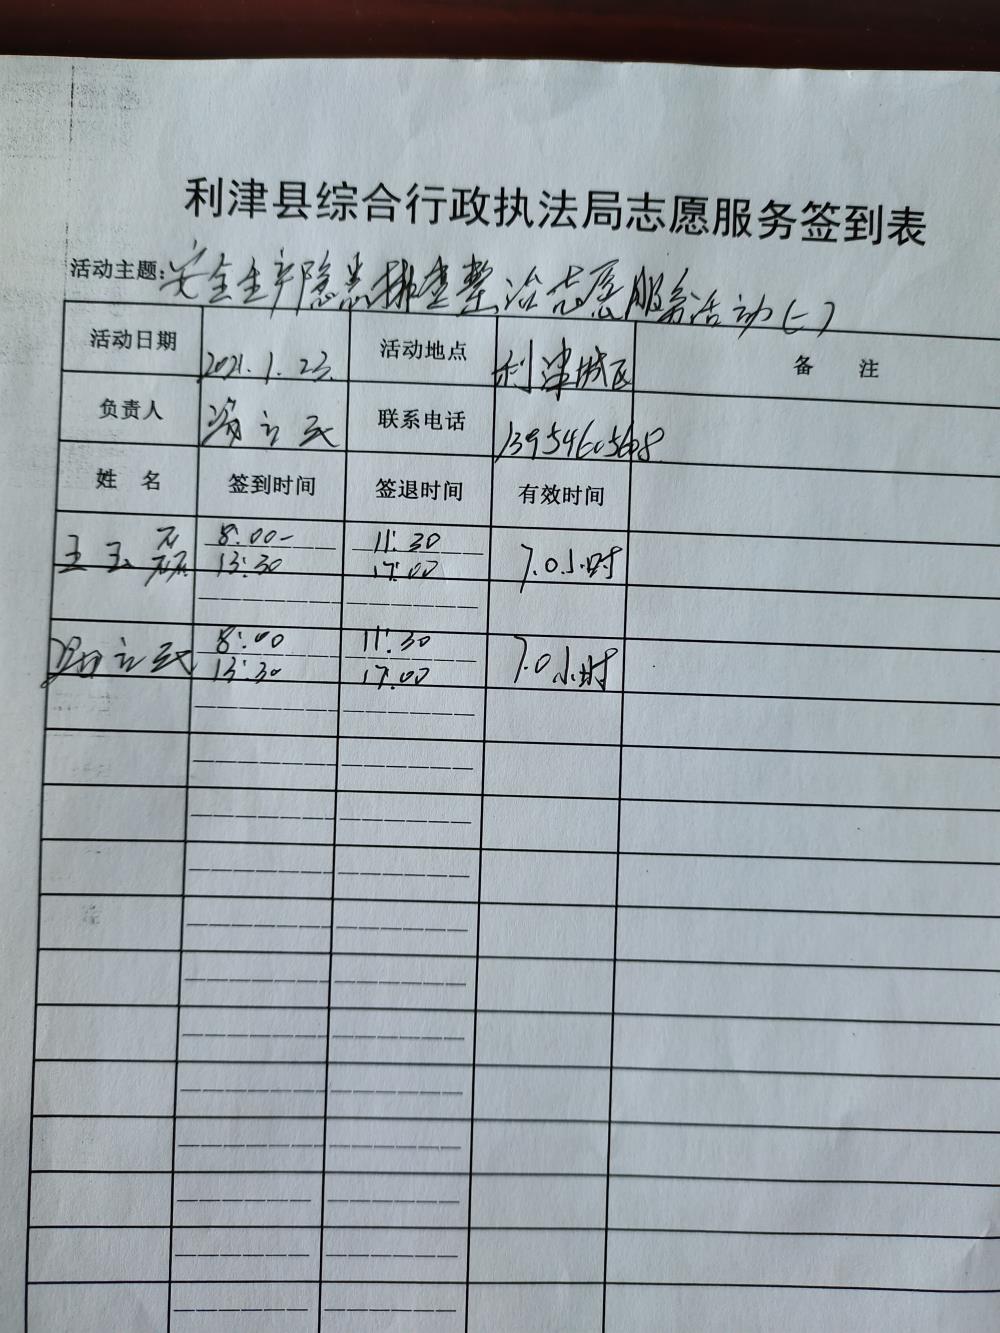 利津县综合行政执法局志愿服务签到表
活动主题:安全生产隐患排查整治志愿服务活动(一)
活动日期 2021.1.23. 活动地点 利津城区 备 注
负责人 立民 联系电话
姓 名 签到时间 签退时间 有效时间
王玉磊 8:00- 11:30 7.0小时
13:30 17:00
立民 8:00 11:30 7.0小时
13:30 17:00